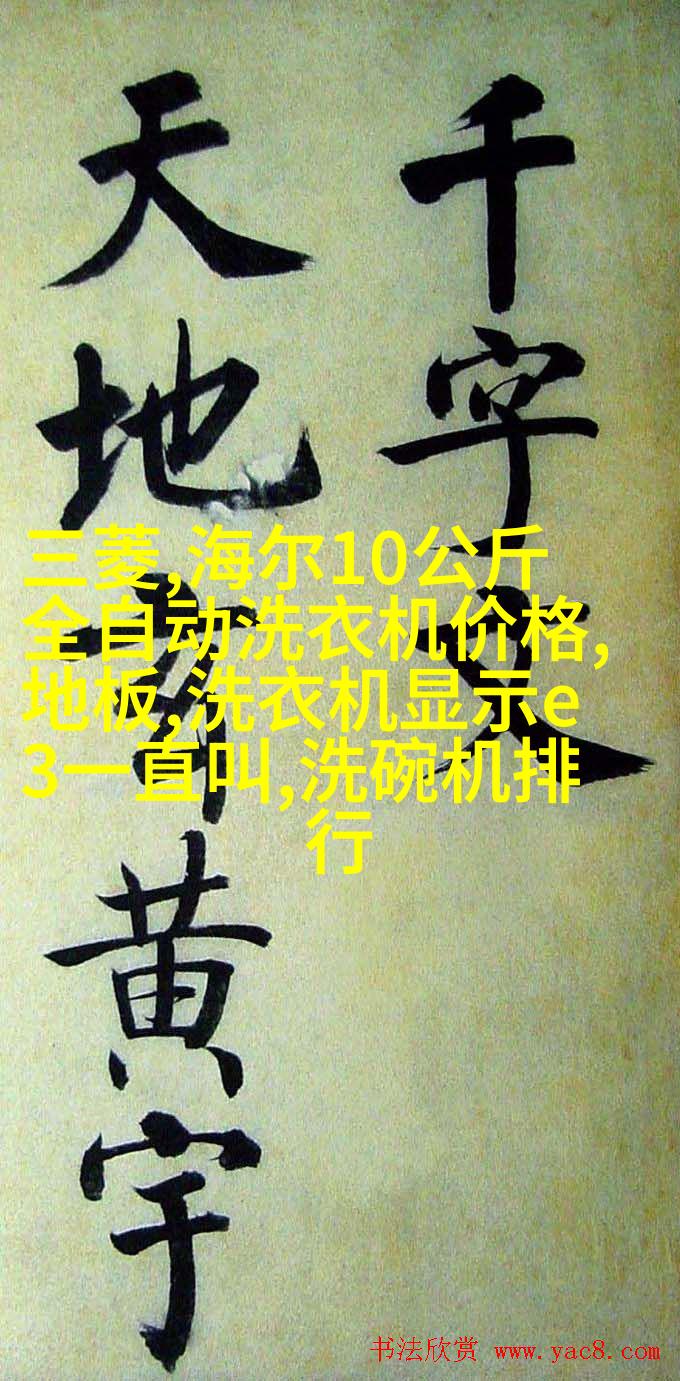 千字文
天地黄宇
三菱,海尔10公斤
全自动洗衣机价格,
地板,洗衣机显示e
3一直叫,洗碗机排
行
书法欣赏 www.yac8.com